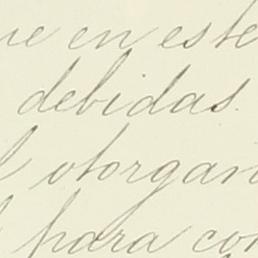 ue en este
debidas.
l otorgan
para con